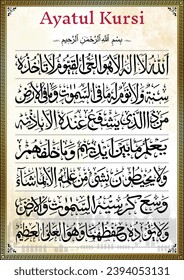 Ayatul Kursi
بِسْمِ اللَّهِ الرَّحْمَنِ الرَّحِيمِ
اللَّهُ لَا إِلَهَ إِلَّا هُوَ الْحَيُّ الْقَيُّومُ لَا تَأْخُذُهُ
سِنَةٌ وَلَا نَوْمٌ لَهُ مَا فِي السَّمَوَتِ وَمَا فِي الْأَرْضِ
مَنْ ذَا الَّذِي يَشْفَعُ عِنْدَهُ إِلَّا بِإِذْنِهِ
يَعْلَمُ مَا بَيْنَ أَيْدِيهِمْ وَمَا خَلْفَهُمْ
وَلَا يُحِيطُونَ بِشَيْءٍ مِنْ عِلْمِهِ إِلَّا بِمَا شَاءَ
وَسِعَ كُرْسِيُّهُ السَّمَوَتِ وَالْأَرْضَ
وَلَا يَئُودُهُ حِفْظُهُمَا وَهُوَ الْعَلِيُّ الْعَظِيمُ
shutterstock.com · 2394053131